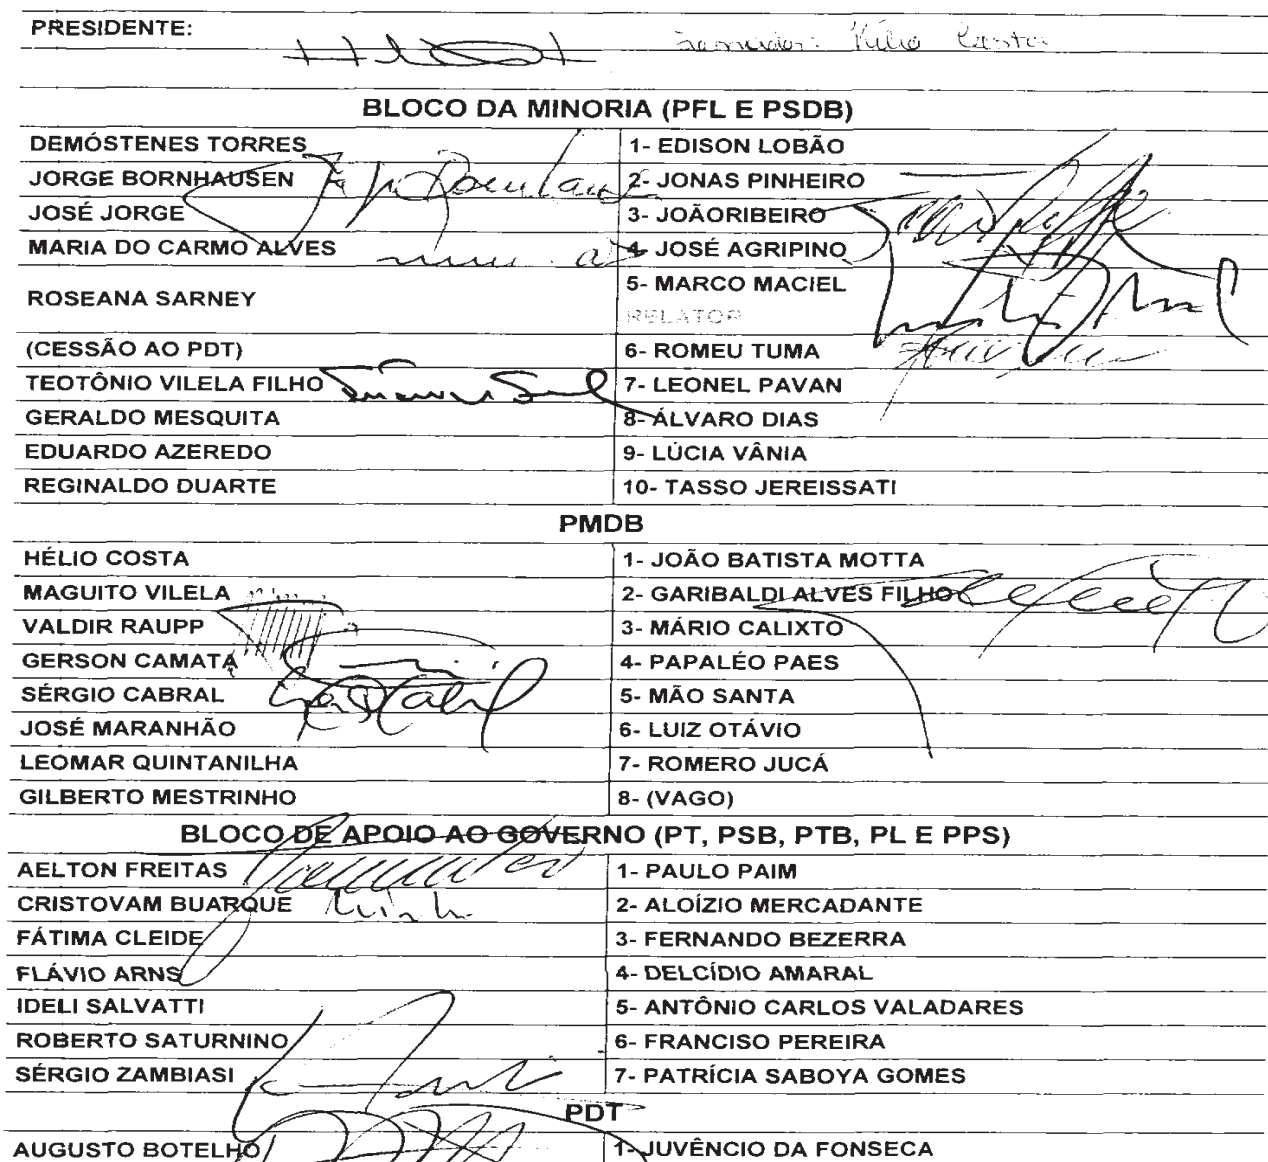 PRESIDENTE:
Senador: Hélio Costa
BLOCO DA MINORIA (PFL E PSDB)
DEMÓSTENES TORRES 1- EDISON LOBÃO
JORGE BORNHAUSEN 2- JONAS PINHEIRO
JOSÉ JORGE 3- JOÃORIBEIRO
MARIA DO CARMO ALVES 4- JOSÉ AGRIPINO
ROSEANA SARNEY 5- MARCO MACIEL
RELATOR
(CESSÃO AO PDT) 6- ROMEU TUMA
TEOTÔNIO VILELA FILHO 7- LEONEL PAVAN
GERALDO MESQUITA 8- ÁLVARO DIAS
EDUARDO AZEREDO 9- LÚCIA VÂNIA
REGINALDO DUARTE 10- TASSO JEREISSATI
PMDB
HÉLIO COSTA 1- JOÃO BATISTA MOTTA
MAGUITO VILELA 2- GARIBALDI ALVES FILHO
VALDIR RAUPP 3- MÁRIO CALIXTO
GERSON CAMATA 4- PAPALÉO PAES
SÉRGIO CABRAL 5- MÃO SANTA
JOSÉ MARANHÃO 6- LUIZ OTÁVIO
LEOMAR QUINTANILHA 7- ROMERO JUCÁ
GILBERTO MESTRINHO 8- (VAGO)
BLOCO DE APOIO AO GOVERNO (PT, PSB, PTB, PL E PPS)
AELTON FREITAS 1- PAULO PAIM
CRISTOVAM BUARQUE 2- ALOÍZIO MERCADANTE
FÁTIMA CLEIDE 3- FERNANDO BEZERRA
FLÁVIO ARNS 4- DELCÍDIO AMARAL
IDELI SALVATTI 5- ANTÔNIO CARLOS VALADARES
ROBERTO SATURNINO 6- FRANCISO PEREIRA
SÉRGIO ZAMBIASI 7- PATRÍCIA SABOYA GOMES
PDT
AUGUSTO BOTELHO 1- JUVÊNCIO DA FONSECA